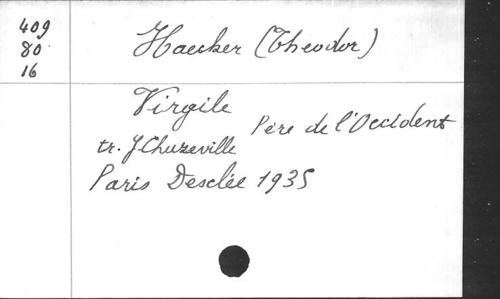 409
80
16
Haecker (Theodor)
Virgile
Père de l'Occident
tr. J Chuzeville
Paris Desclée 1935